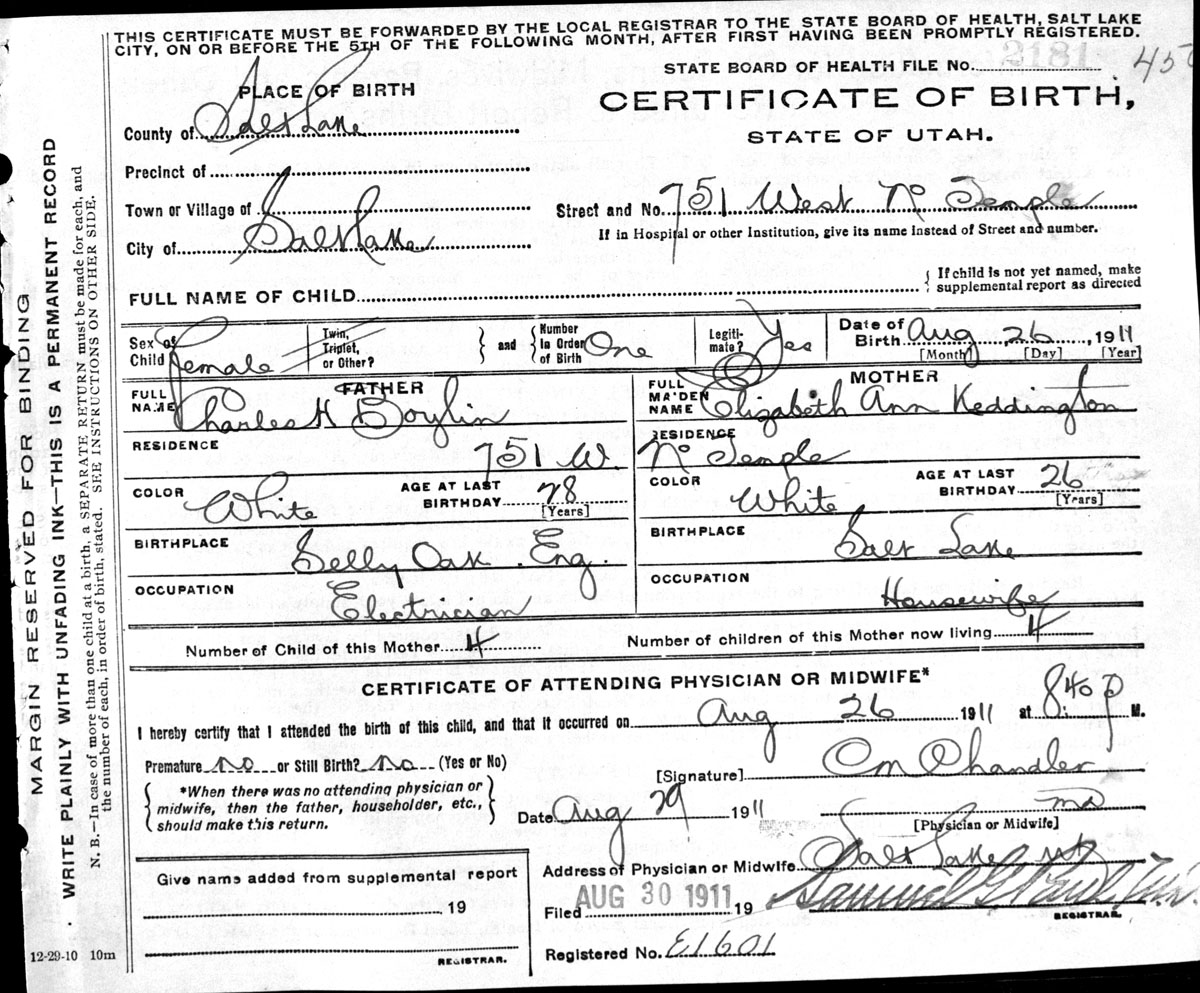 THIS CERTIFICATE MUST BE FORWARDED BY THE LOCAL REGISTRAR TO THE STATE BOARD OF HEALTH, SALT LAKE
CITY, ON OR BEFORE THE 5TH OF THE FOLLOWING MONTH, AFTER FIRST HAVING BEEN PROMPTLY REGISTERED.
STATE BOARD OF HEALTH FILE No. 2181
PLACE OF BIRTH
CERTIFICATE OF BIRTH,
STATE OF UTAH.
County of Salt Lake
Precinct of
Town or Village of
Street and No. 751 West No Temple
City of Salt Lake
If in Hospital or other Institution, give its name instead of Street and number.
FULL NAME OF CHILD
If child is not yet named, make
supplemental report as directed
Sex of Child Female
Twin, Triplet, or Other?
and
Number In Order of Birth One
Legiti-mate? Yes
Date of Birth Aug 26, 1911
[Month] [Day] [Year]
FATHER
FULL NAME Charles H Boylin
RESIDENCE 751 W.
COLOR White
AGE AT LAST BIRTHDAY 28
[Years]
BIRTHPLACE Selly Oak . Eng.
OCCUPATION Electrician
MOTHER
FULL MAIDEN NAME Elizabeth Ann Keddington
RESIDENCE No Temple
COLOR White
AGE AT LAST BIRTHDAY 26
[Years]
BIRTHPLACE Salt Lake
OCCUPATION Housewife
Number of Child of this Mother 4
Number of children of this Mother now living 4
CERTIFICATE OF ATTENDING PHYSICIAN OR MIDWIFE*
I hereby certify that I attended the birth of this child, and that it occurred on Aug 26 1911 at 8:40 p M.
Premature no or Still Birth? no (Yes or No)
[Signature] C M Chandler
*When there was no attending physician or
midwife, then the father, householder, etc.,
should make this return.
Date Aug 29 1911 md
[Physician or Midwife]
Address of Physician or Midwife Salt Lake
Give name added from supplemental report
19
REGISTRAR.
Filed AUG 30 1911 19 Samuel G Paul
REGISTRAR.
Registered No. E1601
12-29-10 10m
MARGIN RESERVED FOR BINDING
WRITE PLAINLY WITH UNFADING INK—THIS IS A PERMANENT RECORD
N. B.—In case of more than one child at a birth, a SEPARATE RETURN must be made for each, and
the number of each, in order of birth, stated. SEE INSTRUCTIONS ON OTHER SIDE.